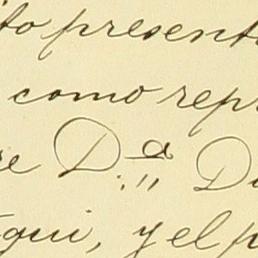 to present
como repr
re D.ª D
gui, y el p